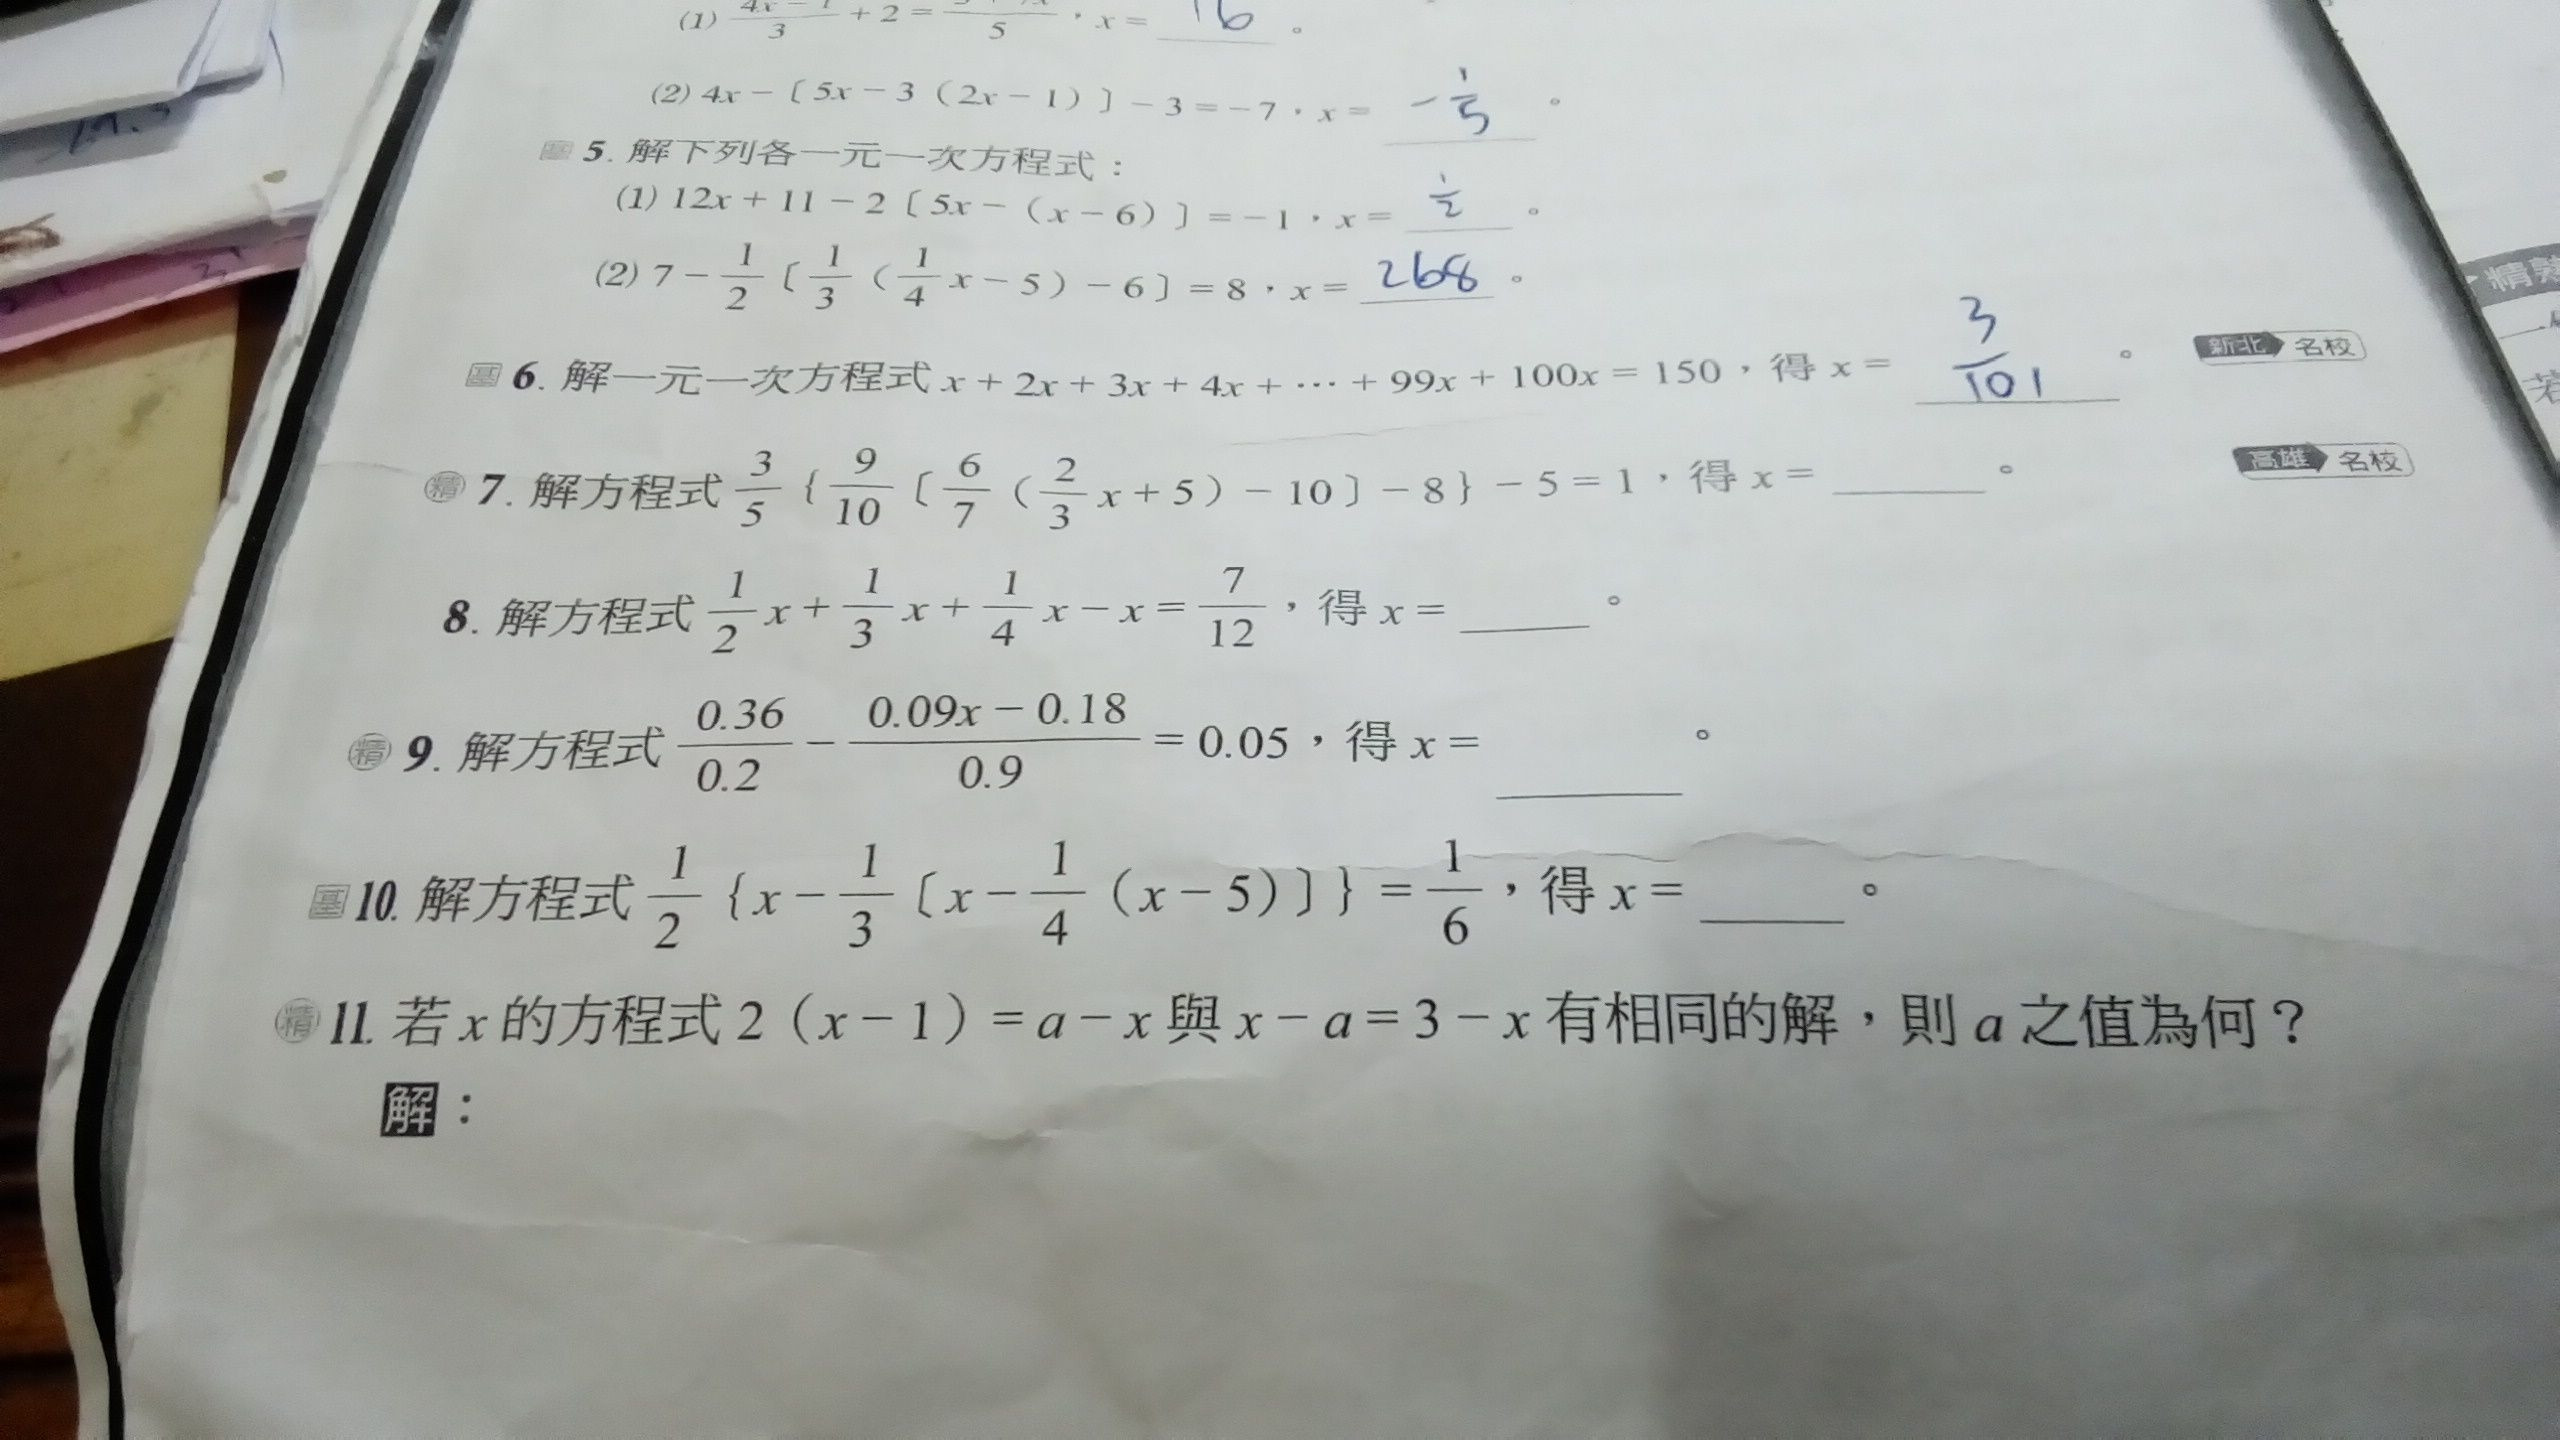 (1) 4x − 1/3 + 2 = /5，x = 16。
(2) 4x −〔5x − 3（2x − 1）〕− 3 = − 7，x = − 1/5。
基 5. 解下列各一元一次方程式：
(1) 12x + 11 − 2〔5x −（x − 6）〕= − 1，x = 1/2。
(2) 7 − 1/2〔1/3（1/4 x − 5）− 6〕= 8，x = 268。
基 6. 解一元一次方程式 x + 2x + 3x + 4x + … + 99x + 100x = 150，得 x = 3/101。 新北 名校
精 7. 解方程式 3/5｛9/10〔6/7（2/3 x + 5）− 10〕− 8｝− 5 = 1，得 x = ______。 高雄 名校
8. 解方程式 1/2 x + 1/3 x + 1/4 x − x = 7/12，得 x = ______。
精 9. 解方程式 0.36/0.2 − 0.09x − 0.18/0.9 = 0.05，得 x = ______。
基 10. 解方程式 1/2｛x − 1/3〔x − 1/4（x − 5）〕｝= 1/6，得 x = ______。
精 11. 若 x 的方程式 2（x − 1）= a − x 與 x − a = 3 − x 有相同的解，則 a 之值為何？
解：
精熟
若